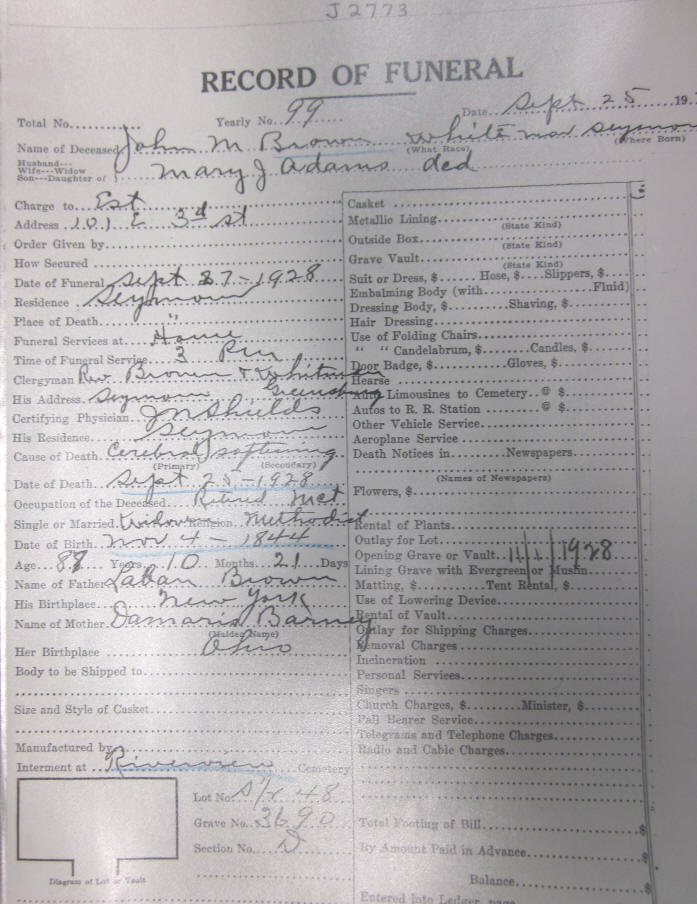 J2773
RECORD OF FUNERAL
Total No............ Yearly No. 99 Date Sept 25 19
Name of Deceased John M Brown White
(What Race) (Where Born)
Husband---
Wife---Widow
Son---Daughter of Mary J Adams ded
Charge to Est
Address 101 E 3rd st
Order Given by
How Secured
Date of Funeral Sept 27-1928
Residence Seymour
Place of Death "
Funeral Services at Home
Time of Funeral Service 3 Pm
Clergyman Rev Brown & Whitman
His Address Seymour Greensburg
Certifying Physician JM Shields
His Residence Seymour
Cause of Death Cerebral softening
(Primary) (Secondary)
Date of Death Sept 25-1928
Occupation of the Deceased Retired Mct
Single or Married Widow Religion Methodist
Date of Birth Nov 4-1844
Age Years 10 Months 21 Days
Name of Father Laban Brown
His Birthplace New York
Name of Mother Damaris Barney
(Maiden Name)
Her Birthplace Ohio
Body to be Shipped to
Size and Style of Casket
Manufactured by
Interment at Riverview Cemetery
Lot No. 48
Grave No. 3690
Section No. D
Diagram of Lot or Vault
Casket
Metallic Lining
(State Kind)
Outside Box
(State Kind)
Grave Vault
(State Kind)
Suit or Dress, $ Hose, $ Slippers, $
Embalming Body (with Fluid)
Dressing Body, $ Shaving, $
Hair Dressing
Use of Folding Chairs
" " Candelabrum, $ Candles, $
Door Badge, $ Gloves, $
Hearse
Limousines to Cemetery @ $
Autos to R. R. Station @ $
Other Vehicle Service
Aeroplane Service
Death Notices in Newspapers
(Names of Newspapers)
Flowers, $
Rental of Plants
Outlay for Lot
Opening Grave or Vault 1928
Lining Grave with Evergreen or Muslin
Matting, $ Tent Rental, $
Use of Lowering Device
Rental of Vault
Outlay for Shipping Charges
Removal Charges
Incineration
Personal Services
Singers
Church Charges, $ Minister, $
Pall Bearer Service
Telegrams and Telephone Charges
Radio and Cable Charges
Total Footing of Bill $
By Amount Paid in Advance $
Balance $
Entered into Ledger, page